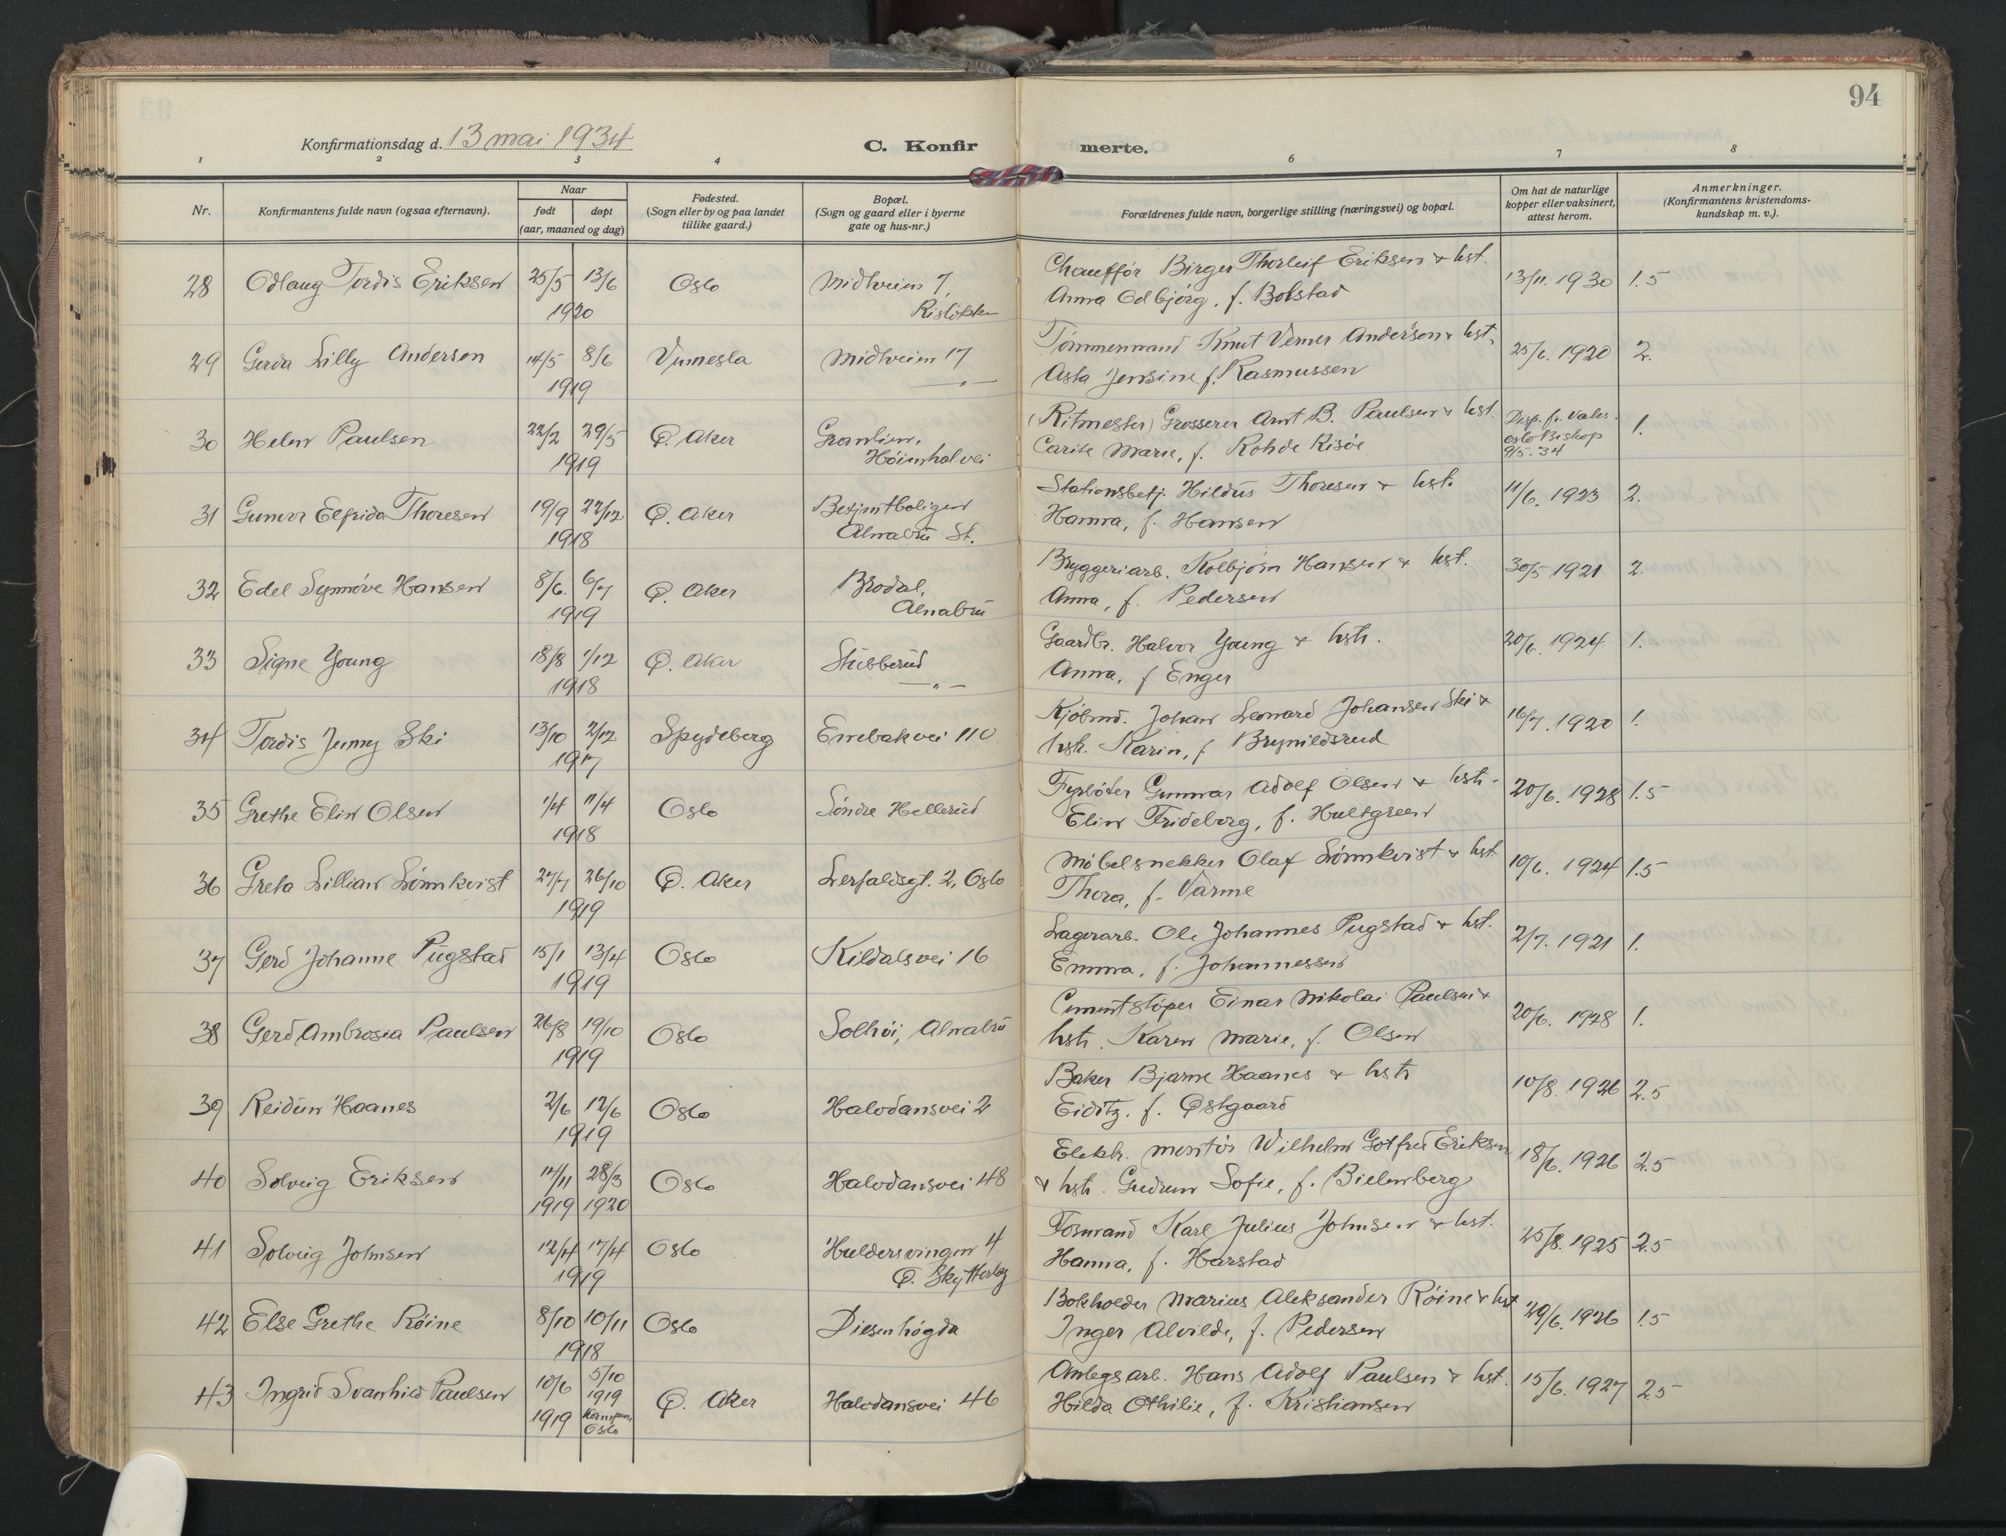 94
Konfirmationsdag d. 13 mai 1934
C. Konfir merte.
1 2 3 4 5 6 7 8
Nr.
Konfirmantens fulde navn (ogsaa efternavn).
Naar
født døpt
(aar, maaned og dag)
Fødested.
(Sogn eller by og paa landet
tillike gaard.)
Bopæl.
(Sogn og gaard eller i byerne
gate og hus-nr.)
Forældrenes fulde navn, borgerlige stilling (næringsvei) og bopæl.
Om hat de naturlige
kopper eller vaksinert,
attest herom.
Anmerkninger.
(Konfirmantens kristendoms-
kundskap m. v.).
28 Odlaug Tordis Eriksen 25/5 13/6 Oslo Midtveien 7, Chauffør Birger Thorleif Eriksen & hst. 13/11. 1930 1.5
1920 Risløkken Anna Odbjørg, f. Bolstad
29 Gerda Lilly Andersen 14/5 8/6 Vennesla Midtveien 17 Tømmermand Knut Verner Andersen & hst. 25/6. 1920 2.
1919 —„— Asta Jensine f. Rasmussen
30 Helen Paulsen 22/2 29/5 Ø. Aker Granlien, (Ritmester) Grosserer Arnt B. Paulsen & hst. Disp. fr. vaks. 1.
1919 Høienhal vei Carite Marie, f. Rohde Risøe Oslo Biskop
9/5. 34
31 Gunvor Elfrida Thoresen 19/9 22/12 Ø. Aker Betjentboligen Stationsbetj. Hildus Thoresen & hst. 11/6. 1923 2.
1918 Alnabru St. Hanna, f. Hansen
32 Edel Synnøve Hansen 8/6. 6/7 Ø. Aker Brodal, Bryggeriarb. Kolbjørn Hansen & hst. 30/5 1921 2.
1919 Alnabru Anna, f. Pedersen
33 Signe Young 18/8 1/12 Ø. Aker Stubberud Gaardbr. Halvor Young & hstr. 20/6. 1924 1.
1918 —„— Anna, f Enger
34 Tordis Jenny Ski 13/10 2/12 Spydeberg Enebakvei 110 Kjøbmd. Johan Leonard Johansen Ski & 16/7. 1920 1.
1917 hstr. Karin, f Brynildsrud
35 Grethe Elin Olsen 1/4 11/4 Oslo Søndre Hellerud Fyrbøter Gunnar Adolf Olsen & hstr. 20/6. 1928 1.5
1918 Elin Frideborg, f. Hultgreen
36 Greta Lillian Lønnkvist 27/7 26/10 Ø. Aker Lerfaldsgt. 2, Oslo Møbelsnekker Olaf Lønnkvist & hst. 10/6. 1924 1.5
1919 Thora, f. Varme
37 Gerd Johanne Pugstad 15/1 13/4 Oslo Kildalsvei 16 Lagerarb. Ole Johannes Pugstad & hst. 2/7. 1921 1.
1919 Emma, f. Johannessen
38 Gerd Ambrosia Paulsen 26/8 19/10 Oslo Solhøi, Alnabru Cementstøper Einar Nikolai Paulsen & 20/6. 1928 1.
1919 hstr. Karen Marie, f. Olsen
39 Reidun Haanes 2/6 12/6 Oslo Halvdansvei 2 Baker Bjarne Haanes & hstr 10/8. 1926 2.5
1919 Eiditz. f. Østgaard
40 Solveig Eriksen 12/11 28/3 Oslo Halvdansvei 48 Elektr. montør Wilhelm Gotfred Eriksen 18/6. 1926 2.5
1919 1920 & hstr. Gudrun Sofie, f. Bielenberg
41 Solveig Johnsen 12/4 17/4 Oslo Huldersvingen 4 Formand Karl Julius Johnsen & hst. 25/8. 1925 2.5
1919 Ø. Skytterlag Hanna, f. Harstad
42 Else Grethe Røine 8/10 10/11 Oslo Diesenhøgda Bokholder Marius Aleksander Røine & hst 29/6. 1926 1.5
1918 Inger Alvilde, f. Pedersen
43 Ingrid Svanhild Paulsen 10/6 5/10 Ø. Aker Halvdansvei 46 Anlegsarb. Hans Adolf Paulsen & hst. 15/6. 1927 2.5
1919 1919 Hilda Othilie, f. Kristiansen
Kampen,
Oslo